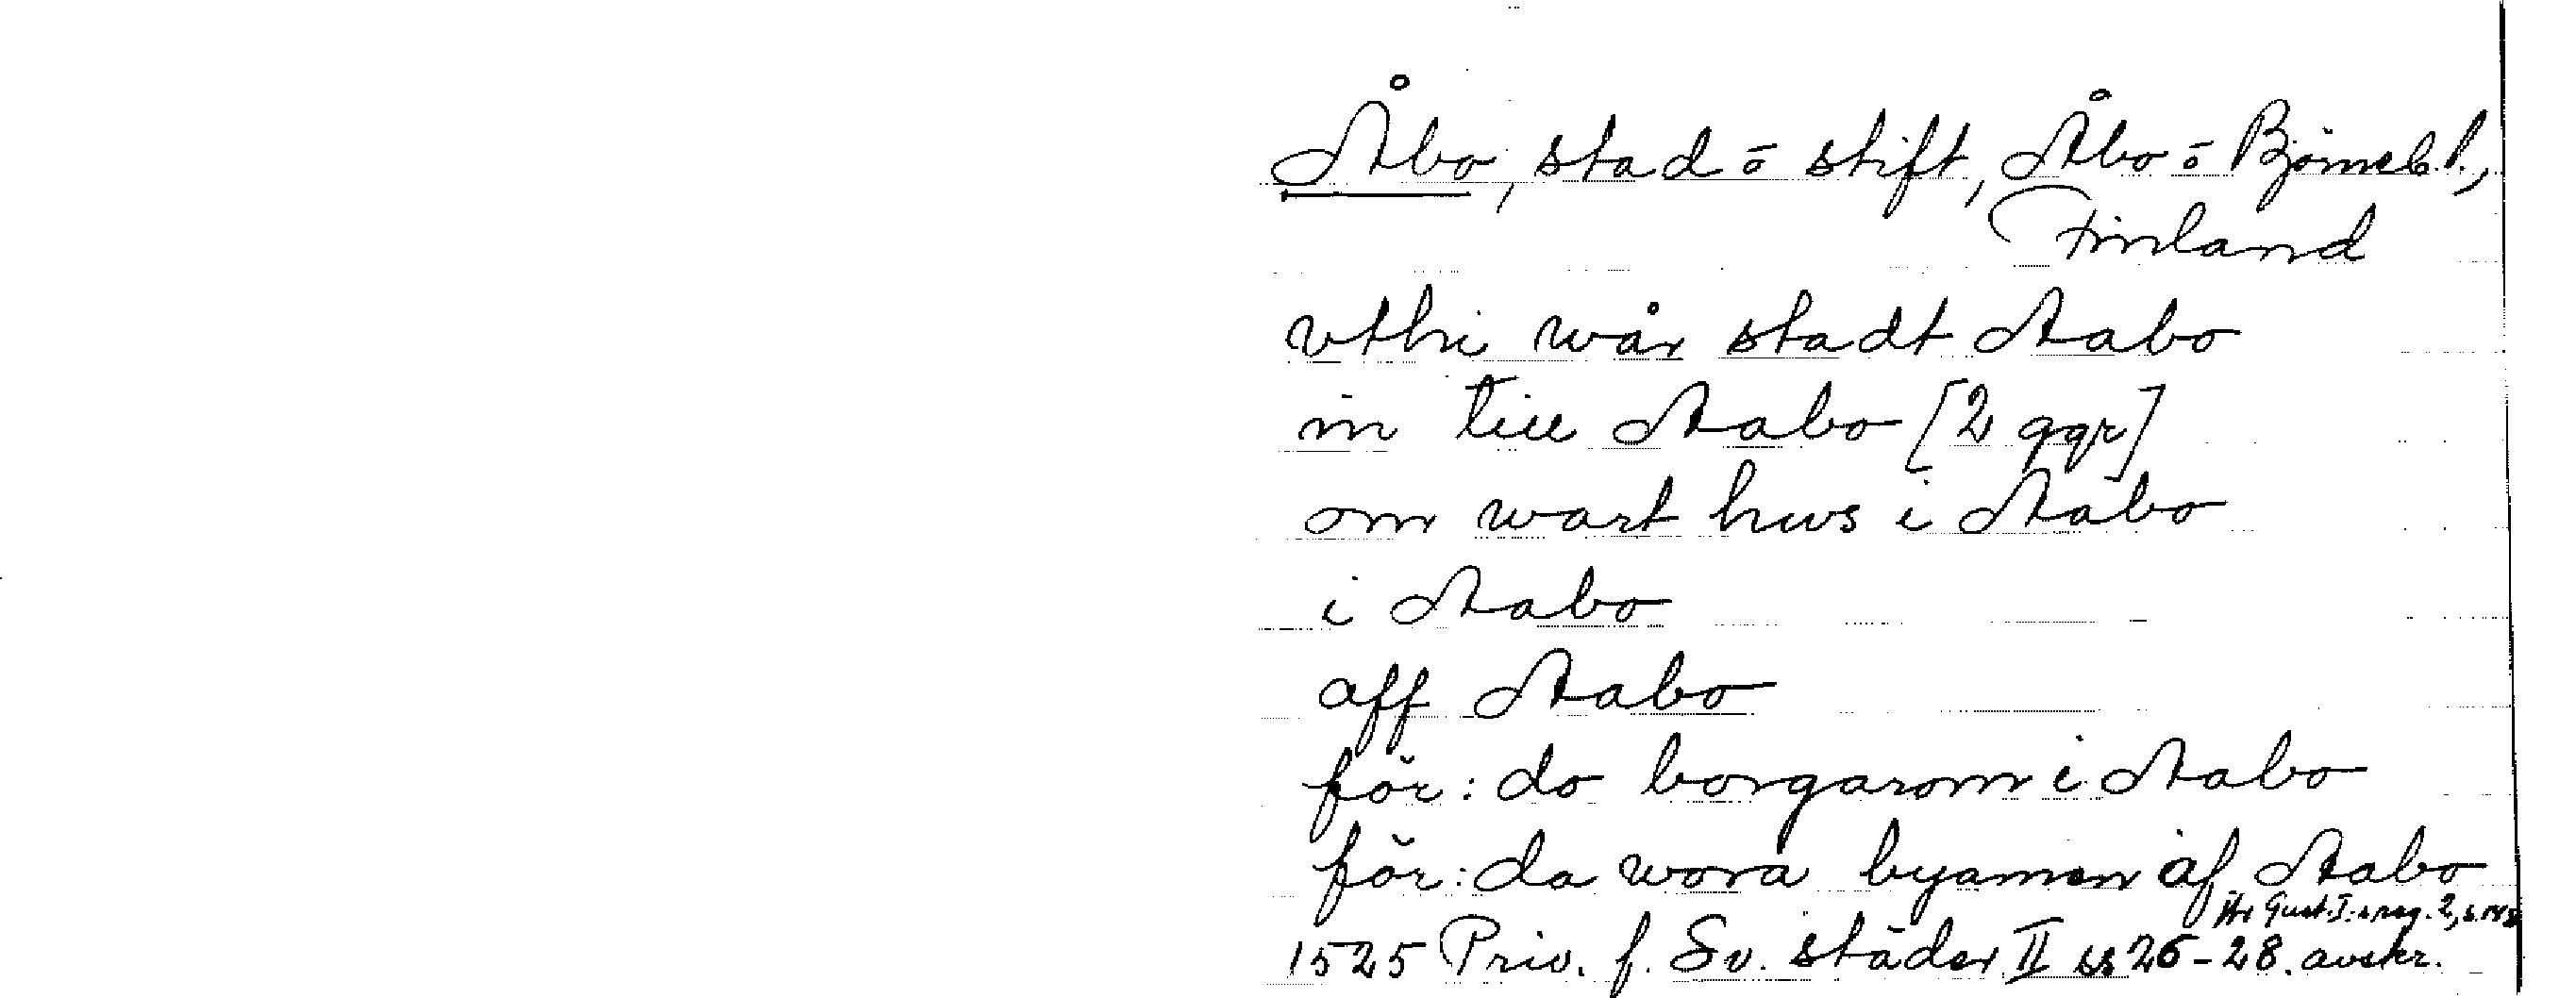 Åbo, stad o stift, Åbo o Björneb. l.,
Finland
vthi wår stadt Aabo
in till Aabo [2 ggr]
om wart hws i Aabo
i Aabo
aff Aabo
för: do borgarom i Aabo
för: da wora byamen af Aabo
Gust. I:s reg. 2, s.
1525 Priv. f. Sv. städer II ss 26-28. avskr.